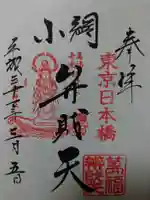 奉拝
東京日本橋
萬福
小網
弁財天
平成三十年月五日